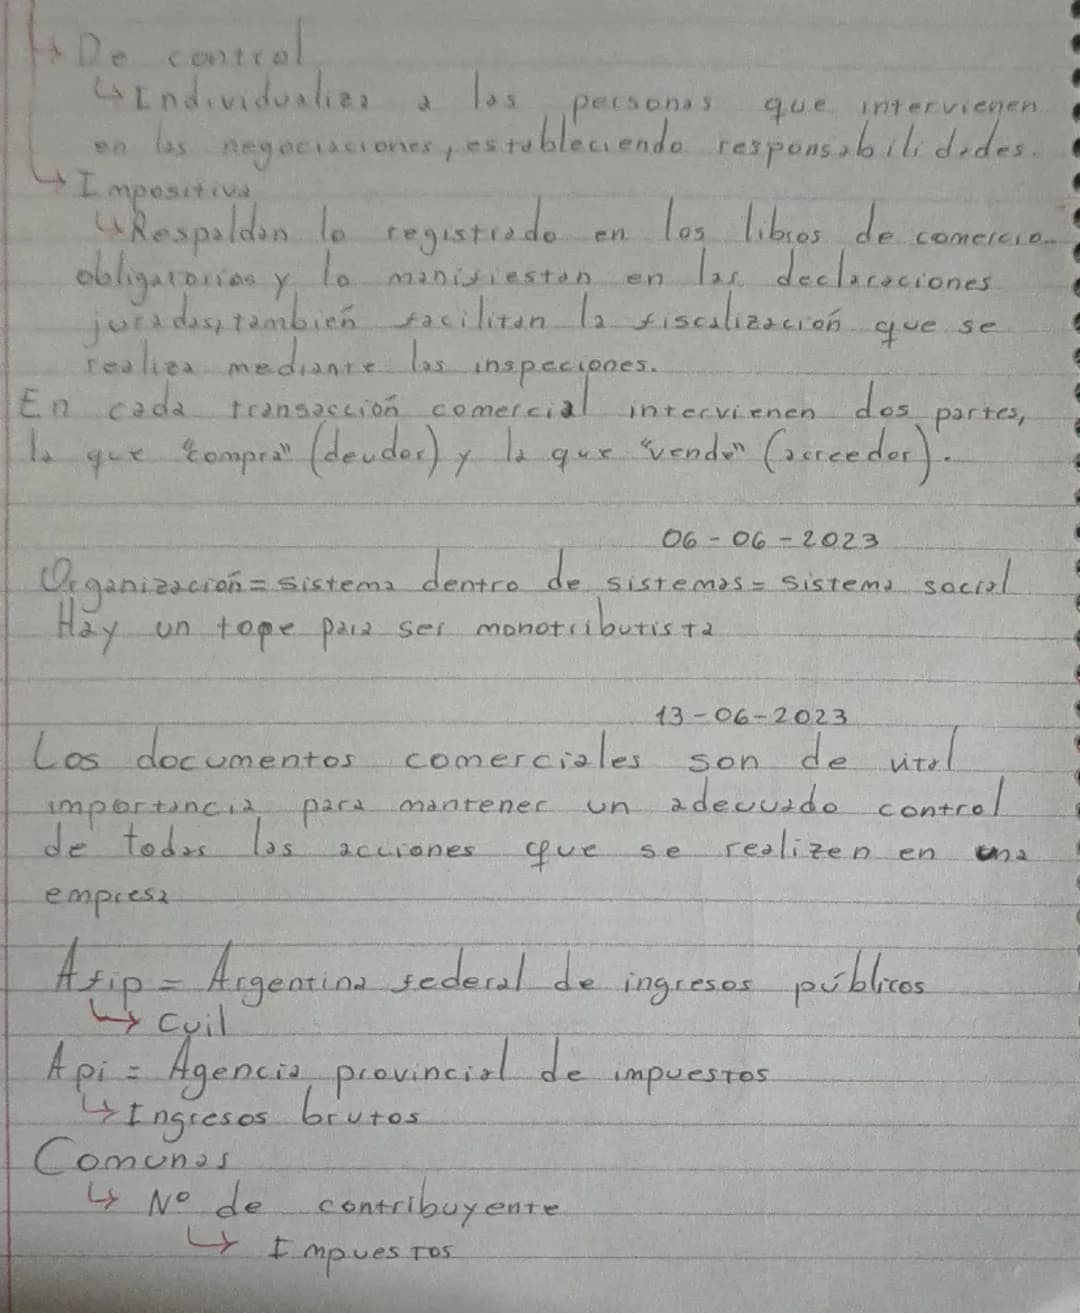 ↳ De control
↳ Individualiza a las personas que intervienen
en las negociaciones, estableciendo responsabilidades.
↳ Impositiva
↳ Respaldan lo registrado en los libros de comercio
obligatorios y lo manifiestan en las declaraciones
juradas, también facilitan la fiscalización que se
realiza mediante las inspeciones.
En cada transacción comercial intervienen dos partes,
la que "compra" (deudor) y la que "vende" (acreedor).
06-06-2023
Organización = sistema dentro de sistemas = sistema social
Hay un tope para ser monotributista
13-06-2023
Los documentos comerciales son de vital
importancia para mantener un adecuado control
de todas las acciones que se realizen en una
empresa
Afip = Argentina federal de ingresos públicos
↳ Cuil
Api = Agencia provincial de impuestos
↳ Ingresos brutos
Comunas
↳ Nº de contribuyente
↳ Impuestos